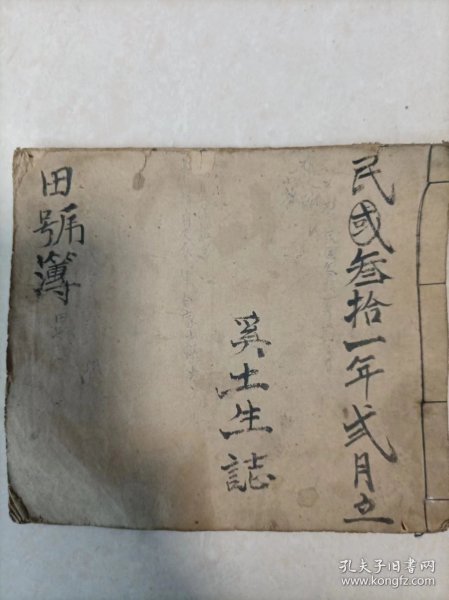 民國叁拾一年弍月立
吳土生誌
田號簿
孔夫子旧书网
www.kongfz.com